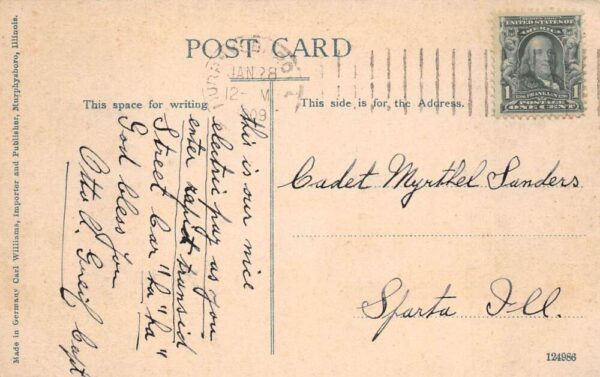 POST CARD
JAN 28
12- M
09
UNITED STATES OF
AMERICA
1
1
FRANKLIN
POSTAGE
ONE CENT
This space for writing
This side is for the Address.
this is our nice
electric pay as you
enter rapid transid
Street Car "ha "ha"
God bless you
Otto A. Greif Capt
Cadet Myrthel Sanders
Sparta Ill.
Made in Germany Carl Williams, Importer and Publisher, Murphysboro, Illinois.
124986